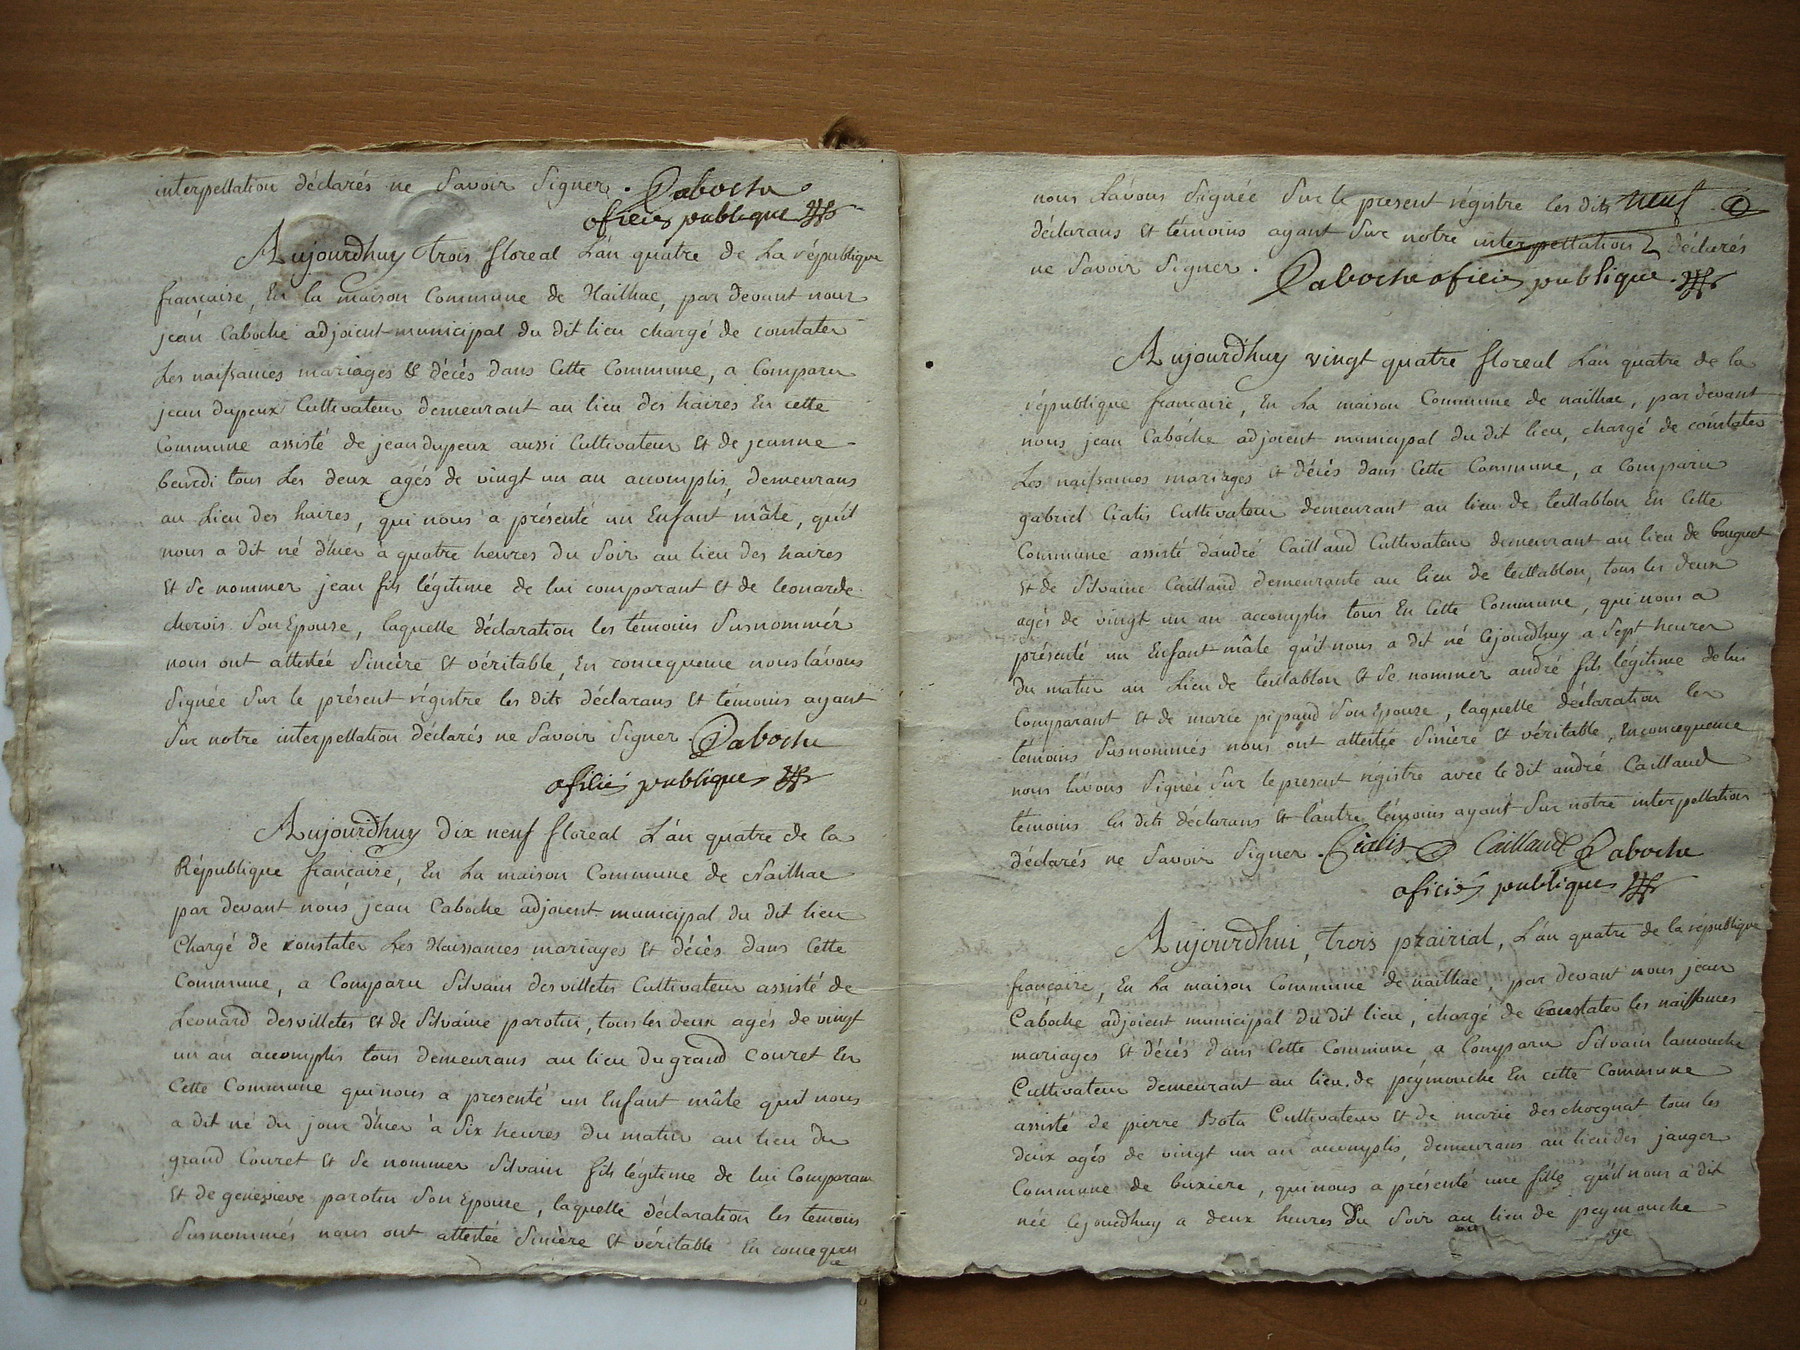 interpellation déclarés ne Savoir Signer. Caboche
oficié publique
Aujourdhuy trois floreal L'an quatre de La république
française, En la maison Commune de Nailhac, par devant nous
jean Caboche adjoient municipal du dit lieu chargé de constater
Les naissances mariages & décès dans Cette Commune, a Comparu
jean dupeux Cultivateur demeurant au lieu des haires En cette
Commune assisté de jean dupeux aussi Cultivateur Et de jeanne
tous Les deux agés de vingt un an accomplis, demeurans
au Lieu des haires, qui nous a présenté un Enfant mâle, qu'il
nous a dit né d'hier à quatre heures du Soir au lieu des haires
Et Se nommer jean fils légitime de lui comparant Et de leonarde
cherois Son Epouse, laquelle déclaration les témoins Susnommés
nous ont attestée Sincère Et véritable, En concequence nous l'avons
Signée Sur le présent régistre les dits déclarans Et témoins ayant
Sur notre interpellation déclarés ne Savoir Signer. Caboche
oficié publique
Aujourdhuy dix neuf floreal L'an quatre de la
République française, En La maison Commune de Nailhac
par devant nous jean Caboche adjoient municipal du dit lieu
Chargé de constater Les Naissances mariages Et décès dans Cette
Commune, a Comparu Silvain desvilletes Cultivateur assisté de
Leonard desvilletes Et de Silvaine parotin, tous les deux agés de vingt
un an accomplis tous demeurans au lieu du grand Couret En
Cette Commune qui nous a presenté un Enfant mâle qu'il nous
a dit né du jour d'hier à Six heures du matin au lieu du
grand Couret Et Se nommer Silvain fils légitime de lui Comparant
Et de genevieve parotin Son Epouse, laquelle déclaration les temoins
Susnommés nous ont attestée Sincère Et véritable En concequen
ce
nous L'avons Signée Sur le present régistre les dits neuf
déclarans Et témoins ayant Sur notre interpellation déclarés
ne Savoir Signer. Caboche oficié publique
Aujourdhuy vingt quatre floreal L'an quatre de la
république française, En La maison Commune de nailhac, par devant
nous jean Caboche adjoient municipal du dit lieu, chargé de constater
Les naissances mariages Et décès dans Cette Commune, a Comparu
gabriel Cialis Cultivateur demeurant au lieu de teillablon En Cette
Commune assisté d'andré Caillaud Cultivateur demeurant au lieu de bouquet
Et de Silvaine Caillaud demeurante au lieu de teillablon, tous les deux
agés de vingt un an accomplis tous En Cette Commune, qui nous a
présenté un Enfant mâle qu'il nous a dit né Cejourdhuy a Sept heures
du matin au Lieu de teillablon Et Se nommer andré fils légitime de lui
Comparant Et de marie pipaud Son Epouse, laquelle déclaration les
témoins Susnommés nous ont attestée Sincère Et véritable, En concequence
nous l'avons Signée Sur le present régistre avec le dit andré Caillaud
témoins les dits déclarans Et l'autre témoins ayant Sur notre interpellation
déclarés ne Savoir Signer. Cialis Caillaud Caboche
oficié publique
Aujourdhui, trois prairial, L'an quatre de la république
française, En La maison Commune de nailhac, par devant nous jean
Caboche adjoient municipal du dit lieu, chargé de Constater les naissances
mariages Et décès dans Cette Commune, a Comparu Silvain lamouche
Cultivateur demeurant au lieu de peymouche En cette Commune
assisté de pierre Bota Cultivateur Et de marie deschocquat tous les
deux agés de vingt un an accomplis, demeurans au lieu des jauger
Commune de buxiere, qui nous a présenté une fille qu'il nous a dit
née Cejourdhuy a deux heures Du Soir au lieu de peymouche